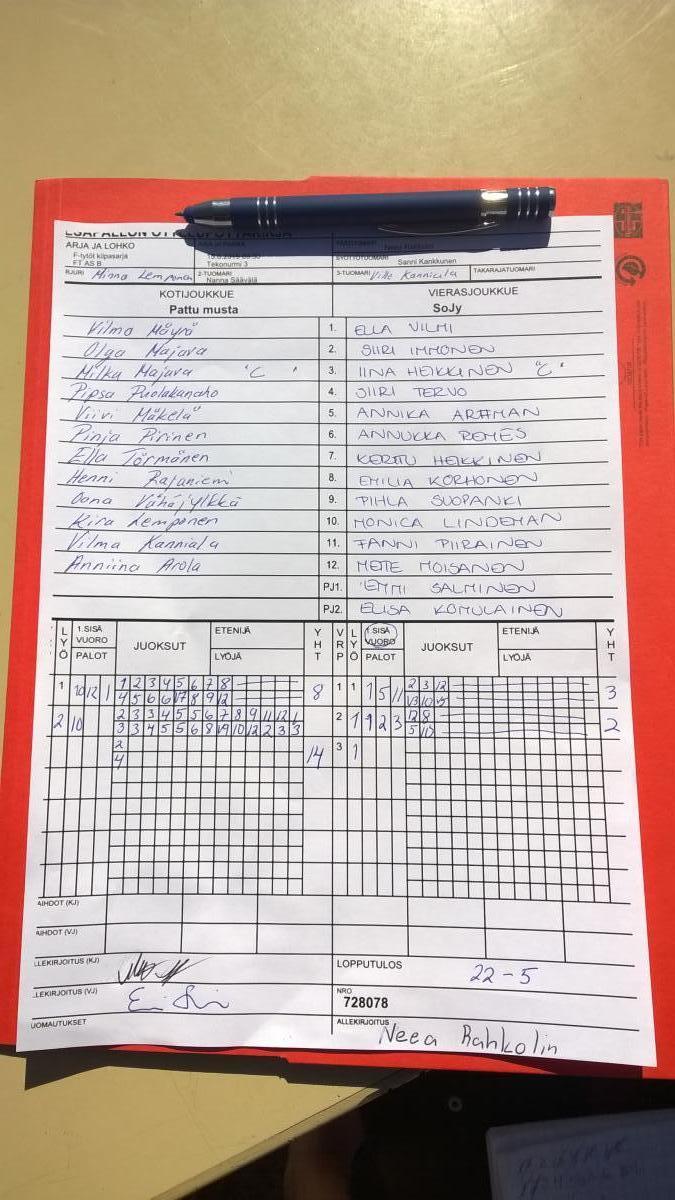 ARJA JA LOHKO
F-tytöt kilpasarja
FT AS B
Tekonurmi 3
Sanni Kankkunen
Minna Lemponen 2-TUOMARI Nanna Säävälä 3-TUOMARI Ville Kanniala TAKARAJATUOMARI
KOTIJOUKKUE VIERASJOUKKUE
Pattu musta SoJy
Vilma Mäyrä 1. ELLA VILMI
Olga Majava 2. SIIRI IMMONEN
Milka Majava "C" 3. IINA HEIKKINEN "C"
Pipsa Puolakanaho 4. JIIRI TERVO
Viivi Mäkelä 5. ANNIKA ARHMAN
Pinja Pirinen 6. ANNUKKA ROMES
Ella Törmänen 7. KERTTU HEIKKINEN
Henni Rajaniemi 8. EMILIA KORHONEN
Oona Vähäjylkkä 9. PIHLA SUOPANKI
Kira Lemponen 10. MONICA LINDEMAN
Vilma Kanniala 11. FANNI PIIRAINEN
Anniina Arola 12. METTE MOISANEN
PJ1. EMMI SALMINEN
PJ2. ELISA KOMULAINEN
LYÖ 1.SISÄ VUORO PALOT JUOKSUT ETENIJÄ LYÖJÄ YHT VRP LYÖ 1.SISÄ VUORO PALOT JUOKSUT ETENIJÄ LYÖJÄ YHT
1 10 12 1 1 2 3 4 5 6 7 8 8 1 1 1 5 11 2 3 12 3
4 5 6 6 17 8 9 12
2 10 2 3 3 4 5 5 6 7 8 9 11 12 1 2 1 1 2 3 12 8 2
3 3 4 5 5 6 8 19 10 12 2 3 3
2 14 3 1
4
AIHDOT (KJ)
AIHDOT (VJ)
LLEKIRJOITUS (KJ) LOPPUTULOS 22-5
LLEKIRJOITUS (VJ) NRO
728078
UOMAUTUKSET ALLEKIRJOITUS Neea Rahkolin